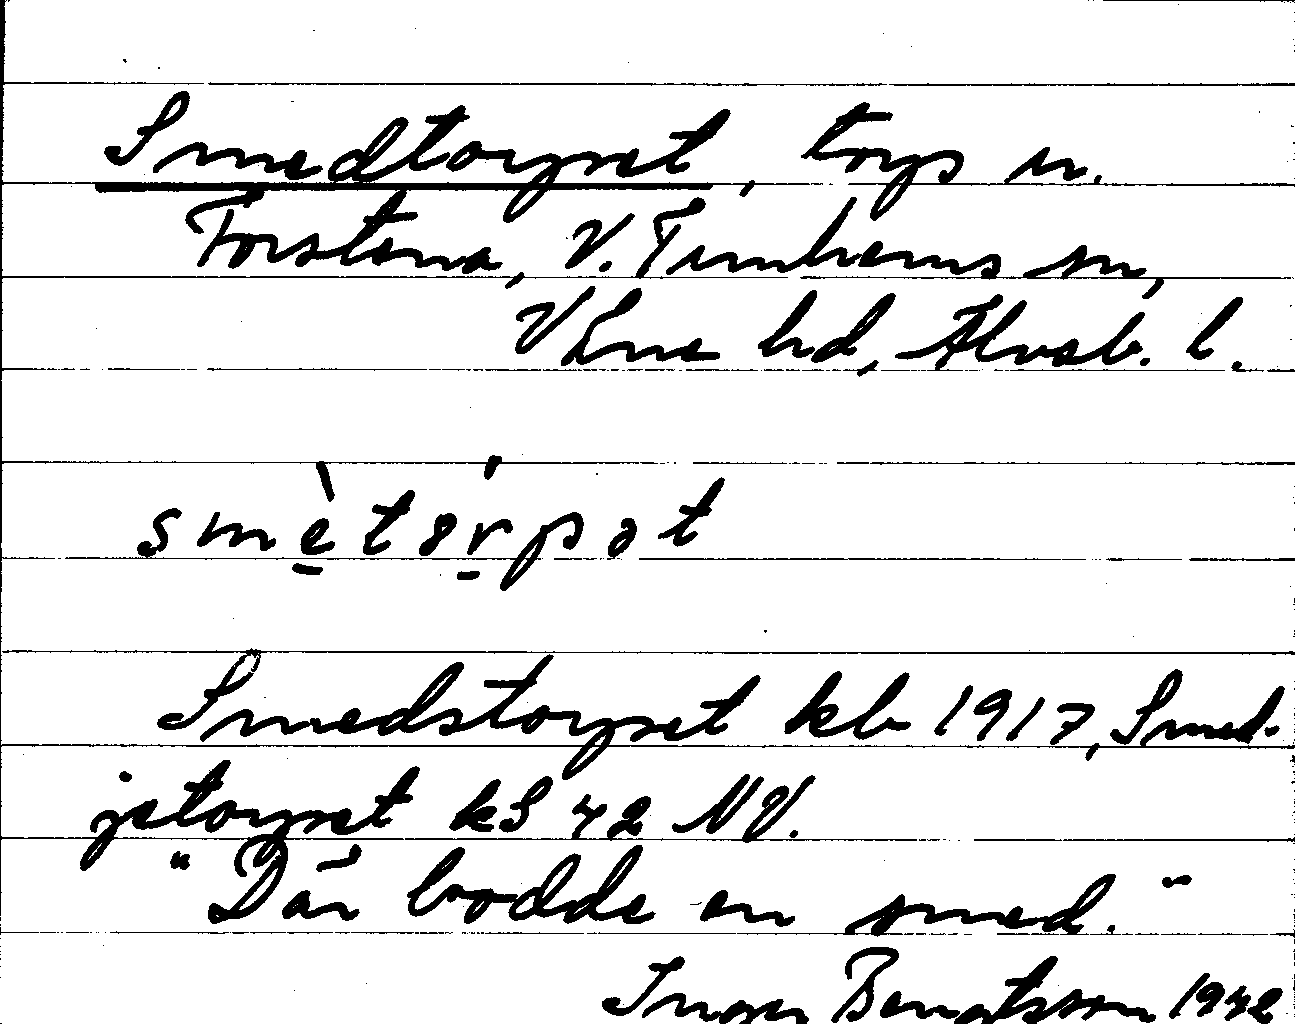 Smedtorpet, torp n.
Forstena, V. Tunhems sn,
Väne hd, Älvsb. l.
smètȣ́rpət
Smedstorpet kb 1917, Smed-
jetorpet kS 42 NV.
"Där bodde en smed."
Inger Bengtsson 1942